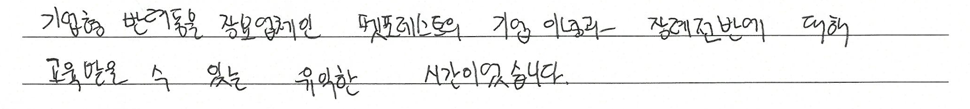 기업형 반려동물 장묘업체인 펫포레스트의 기업 이념과 장례전반에 대해
교육받을 수 있는 유익한 시간이었습니다.